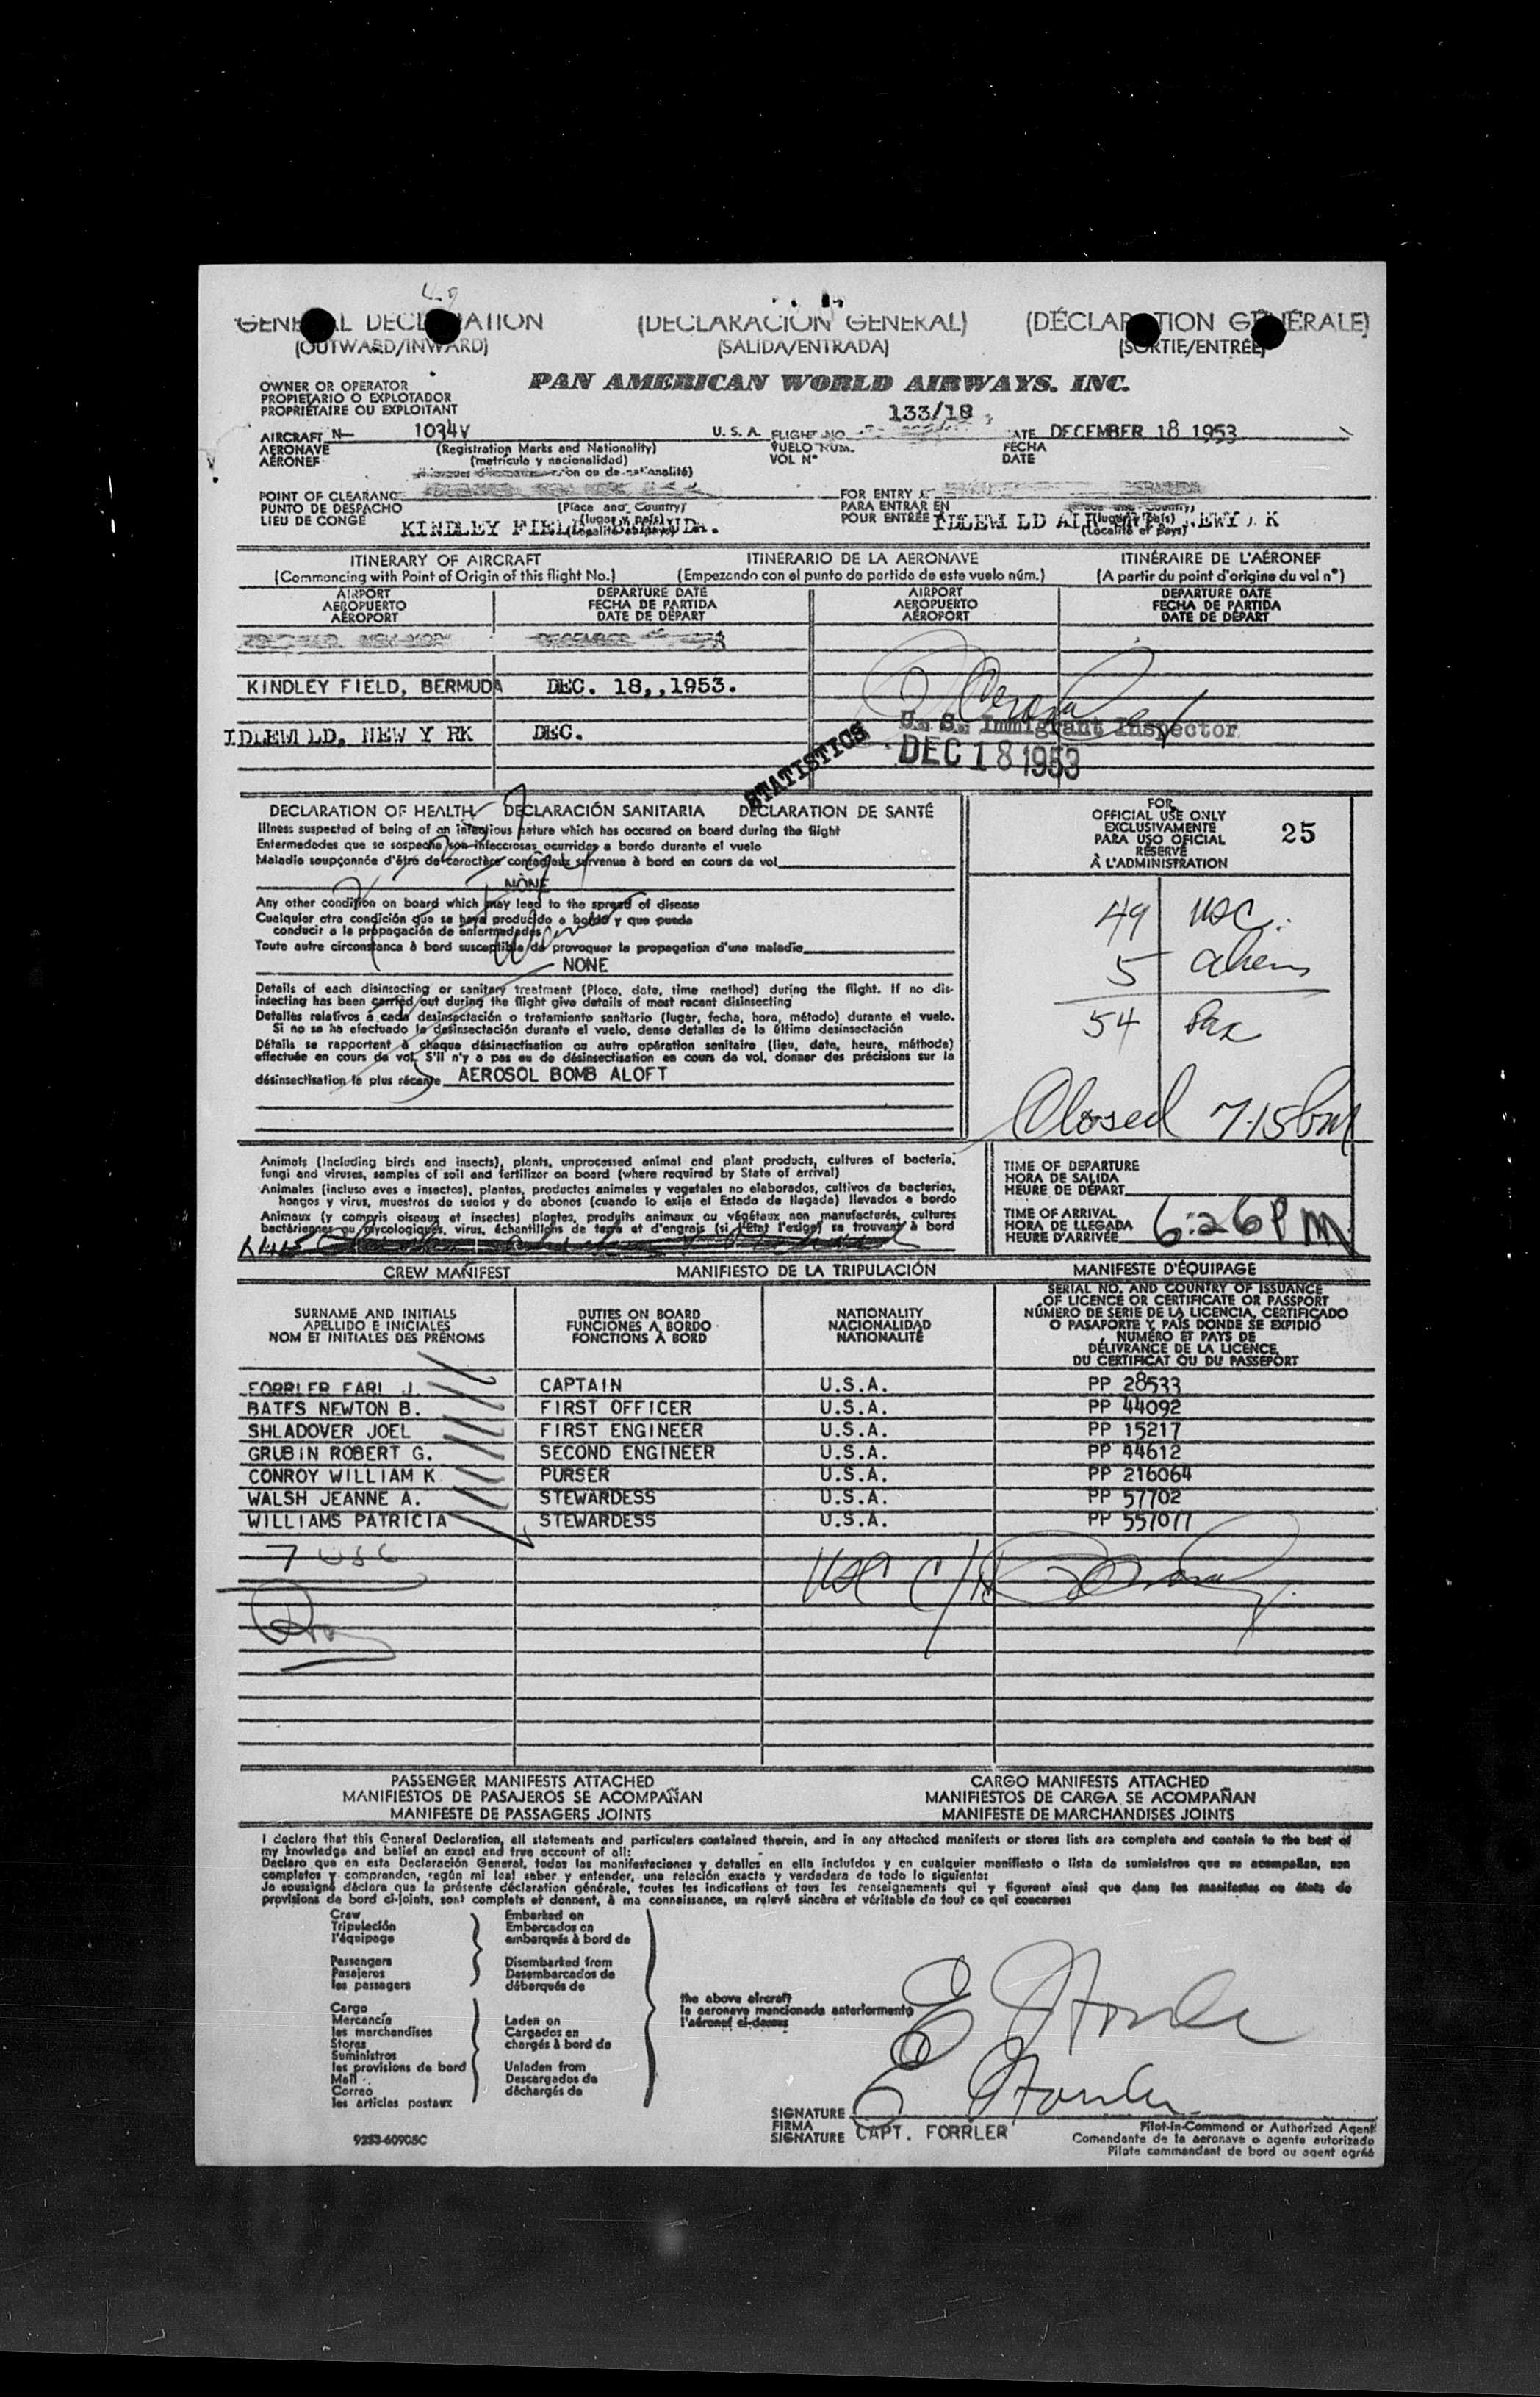 GENERAL DECLARATION (DECLARACIÓN GENERAL) (DÉCLARATION GÉNÉRALE)
(OUTWARD/INWARD) (SALIDA/ENTRADA) (SORTIE/ENTRÉE)
OWNER OR OPERATOR
PROPIETARIO O EXPLOTADOR
PROPRIÉTAIRE OU EXPLOITANT
PAN AMERICAN WORLD AIRWAYS, INC.
133/18
AIRCRAFT N- 1034V U.S.A. FLIGHT NO. DATE DECEMBER 18 1953
AERONAVE (Registration Marks and Nationality) VUELO NUM. FECHA
AÉRONEF (matrícula y nacionalidad) VOL N° DATE
POINT OF CLEARANCE FOR ENTRY AT
PUNTO DE DESPACHO (Place and Country) PARA ENTRAR EN
LIEU DE CONGÉ (lugar y país) POUR ENTRÉE À (lugar y país)
KINDLEY FIELD BERMUDA. IDLEW LD AIRPORT, NEWY K
(Localité et Pays)
ITINERARY OF AIRCRAFT ITINERARIO DE LA AERONAVE ITINÉRAIRE DE L'AÉRONEF
(Commencing with Point of Origin of this flight No.) (Empezando con el punto de partida de este vuelo núm.) (A partir du point d'origine du vol n°)
AIRPORT DEPARTURE DATE AIRPORT DEPARTURE DATE
AEROPUERTO FECHA DE PARTIDA AEROPUERTO FECHA DE PARTIDA
AÉROPORT DATE DE DÉPART AÉROPORT DATE DE DÉPART
KINDLEY FIELD, BERMUDA DEC. 18,,1953.
IDLEWI LD, NEW Y RK DEC.
U. S. Immigrant Inspector
DEC 18 1953
STATISTICS
DECLARATION OF HEALTH DECLARACIÓN SANITARIA DÉCLARATION DE SANTÉ
Illness suspected of being of an infectious nature which has occured on board during the flight
Enfermedades que se sospecha son infecciosas ocurridas a bordo durante el vuelo
Maladie soupçonnée d'être de caractère contagieux survenue à bord en cours de vol
NONE
Any other condition on board which may lead to the spread of disease
Cualquier otra condición que se haya producido a bordo y que pueda
conducir a la propagación de enfermedades
Toute autre circonstance à bord susceptible de provoquer la propagation d'une maladie
NONE
Details of each disinsecting or sanitary treatment (Place, date, time method) during the flight. If no dis-
insecting has been carried out during the flight give details of most recent disinsecting
Detalles relativos a cada desinsectación o tratamiento sanitario (lugar, fecha, hora, método) durante el vuelo.
Si no se ha efectuado la desinsectación durante el vuelo, dense detalles de la última desinsectación
Détails se rapportant à chaque désinsectisation ou autre opération sanitaire (lieu, date, heure, méthode)
effectuée en cours de vol. S'il n'y a pas eu de désinsectisation en cours de vol, donner des précisions sur la
désinsectisation la plus récente AEROSOL BOMB ALOFT
FOR
OFFICIAL USE ONLY
EXCLUSIVAMENTE
PARA USO OFICIAL
RÉSERVÉ
À L'ADMINISTRATION
25
49 USC.
5 aliens
54 Pax
Closed 7:15 pm
Animals (Including birds and insects), plants, unprocessed animal and plant products, cultures of bacteria,
fungi and viruses, samples of soil and fertilizer on board (where required by State of arrival)
Animales (incluso aves e insectos), plantas, productos animales y vegetales no elaborados, cultivos de bacterias,
hongos y virus, muestras de suelos y de abonos (cuando lo exija el Estado de llegada) llevados a bordo
Animaux (y compris oiseaux et insectes) plantes, produits animaux ou végétaux non manufacturés, cultures
bactériennes ou mycologiques, virus, échantillons de terre et d'engrais (si l'Etat l'exige) se trouvant à bord
TIME OF DEPARTURE
HORA DE SALIDA
HEURE DE DÉPART
TIME OF ARRIVAL
HORA DE LLEGADA
HEURE D'ARRIVÉE
6:26PM
CREW MANIFEST MANIFIESTO DE LA TRIPULACIÓN MANIFESTE D'ÉQUIPAGE
SURNAME AND INITIALS DUTIES ON BOARD NATIONALITY
APELLIDO E INICIALES FUNCIONES A BORDO NACIONALIDAD
NOM ET INITIALES DES PRÉNOMS FONCTIONS À BORD NATIONALITÉ
SERIAL NO. AND COUNTRY OF ISSUANCE
OF LICENCE OR CERTIFICATE OR PASSPORT
NÚMERO DE SERIE DE LA LICENCIA, CERTIFICADO
O PASAPORTE Y PAÍS DONDE SE EXPIDIÓ
NUMÉRO ET PAYS DE
DÉLIVRANCE DE LA LICENCE,
DU CERTIFICAT OU DU PASSEPORT
FORRLER EARL J. CAPTAIN U.S.A. PP 28533
BATES NEWTON B. FIRST OFFICER U.S.A. PP 44092
SHLADOVER JOEL FIRST ENGINEER U.S.A. PP 15217
GRUBIN ROBERT G. SECOND ENGINEER U.S.A. PP 44612
CONROY WILLIAM K PURSER U.S.A. PP 216064
WALSH JEANNE A. STEWARDESS U.S.A. PP 57702
WILLIAMS PATRICIA STEWARDESS U.S.A. PP 557077
7 USC
USC
PASSENGER MANIFESTS ATTACHED CARGO MANIFESTS ATTACHED
MANIFIESTOS DE PASAJEROS SE ACOMPAÑAN MANIFIESTOS DE CARGA SE ACOMPAÑAN
MANIFESTE DE PASSAGERS JOINTS MANIFESTE DE MARCHANDISES JOINTS
I declare that this General Declaration, all statements and particulars contained therein, and in any attached manifests or stores lists are complete and contain to the best of
my knowledge and belief an exact and true account of all:
Declaro que en esta Declaración General, todas las manifestaciones y detalles en ella incluídos y en cualquier manifiesto o lista de suministros que se acompañan, son
completos y comprenden, según mi leal saber y entender, una relación exacta y verdadera de todo lo siguiente:
Je soussigné déclare que la présente déclaration générale, toutes les indications et tous les renseignements qui y figurent ainsi que dans les manifestes ou états de
provisions de bord ci-joints, sont complets et donnent, à ma connaissance, un relevé sincère et véritable de tout ce qui concerne:
Crew Embarked on
Tripulación Embarcados en
l'équipage embarqués à bord de
Passengers Disembarked from
Pasajeros Desembarcados de
les passagers débarqués de
the above aircraft
la aeronave mencionada anteriormente
l'aéronef ci-dessus
Cargo
Mercancía Laden on
les marchandises Cargados en
Stores chargés à bord de
Suministros
les provisions de bord Unladen from
Mail Descargados de
Correo déchargés de
les articles postaux
E Forrler
E Forrler
SIGNATURE
FIRMA
SIGNATURE CAPT. FORRLER
Pilot-in-Command or Authorized Agent
Comandante de la aeronave o agente autorizado
Pilote commandant de bord ou agent agréé
9253-60905C